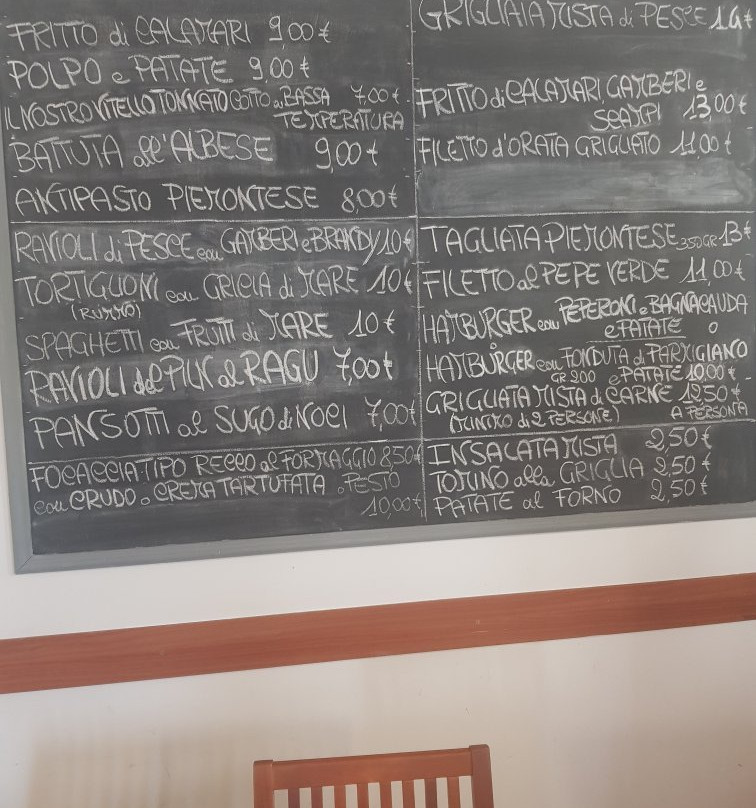 FRITTO di CALAMARI 9,00 €
POLPO e PATATE 9,00 €
IL NOSTRO VITELLO TONNATO COTTO a BASSA 7,00 €
TEMPERATURA
BATTUTA all'ALBESE 9,00 €
ANTIPASTO PIEMONTESE 8,00 €
RAVIOLI di PESCE con GAMBERI e BRANDY 10 €
TORTIGLIONI con GRICIA di MARE 10 €
(RUMMO)
SPAGHETTI con FRUTTI di MARE 10 €
RAVIOLI del PLIN al RAGU 7,00 €
PANSOTTI al SUGO di NOCI 7,00 €
FOCACCIA TIPO RECCO al FORMAGGIO 8,50 €
con CRUDO o CREMA TARTUFATA o PESTO
10,00 €
GRIGLIATA MISTA di PESCE 14 €
FRITTO di CALAMARI, GAMBERI e
SCAMPI 13,00 €
FILETTO d'ORATA GRIGLIATO 11,00 €
TAGLIATA PIEMONTESE 350 GR 13 €
FILETTO al PEPE VERDE 11,00 €
HAMBURGER con PEPERONI e BAGNACAUDA
e PATATE O
HAMBURGER con FONDUTA di PARMIGIANO
GR 200 e PATATE 10,00 €
GRIGLIATA MISTA di CARNE 12,50 €
(MINIMO di 2 PERSONE) A PERSONA
INSALATA MISTA 2,50 €
TOMINO alla GRIGLIA 2,50 €
PATATE al FORNO 2,50 €